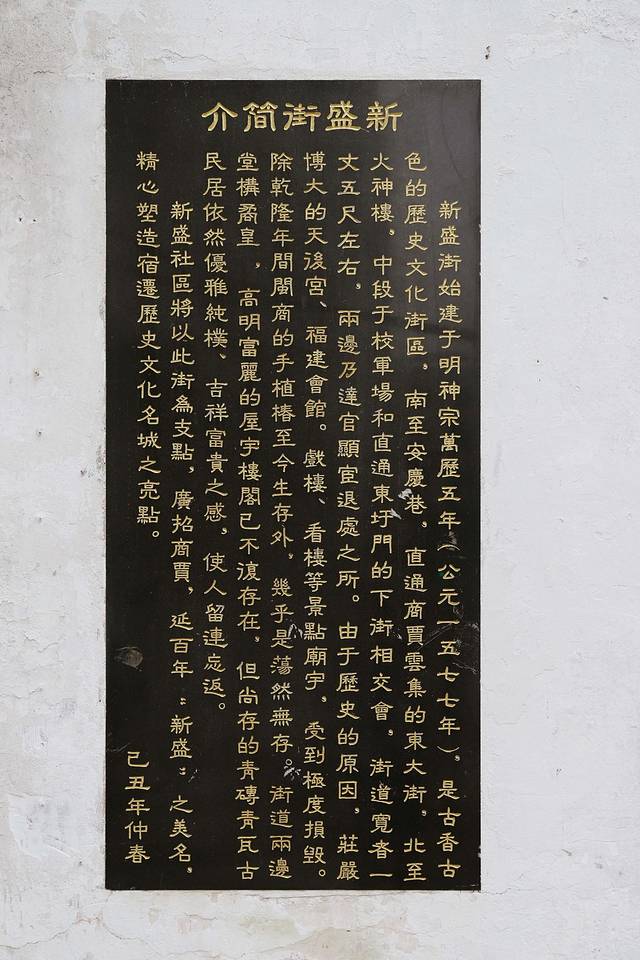 新盛街簡介
新盛街始建于明神宗萬歷五年(公元一五七七年)，是古香古
色的歷史文化街區，南至安慶巷，直通商賈雲集的東大街，北至
火神樓，中段于校軍場和直通東圩門的下街相交會，街道寬者一
丈五尺左右，兩邊乃達官顯宦退處之所。由于歷史的原因，莊嚴
博大的天後宮、福建會館。戲樓、看樓等景點廟宇，受到極度損毀。
除乾隆年間閩商的手植椿至今生存外，幾乎是蕩然無存。街道兩邊
堂構矞皇，高明富麗的屋宇樓閣已不復存在，但尚存的青磚青瓦古
民居依然優雅純樸、吉祥富貴之感，使人留連忘返。
新盛社區將以此街為支點，廣招商賈，延百年：新盛：之美名，
精心塑造宿遷歷史文化名城之亮點。
己丑年仲春